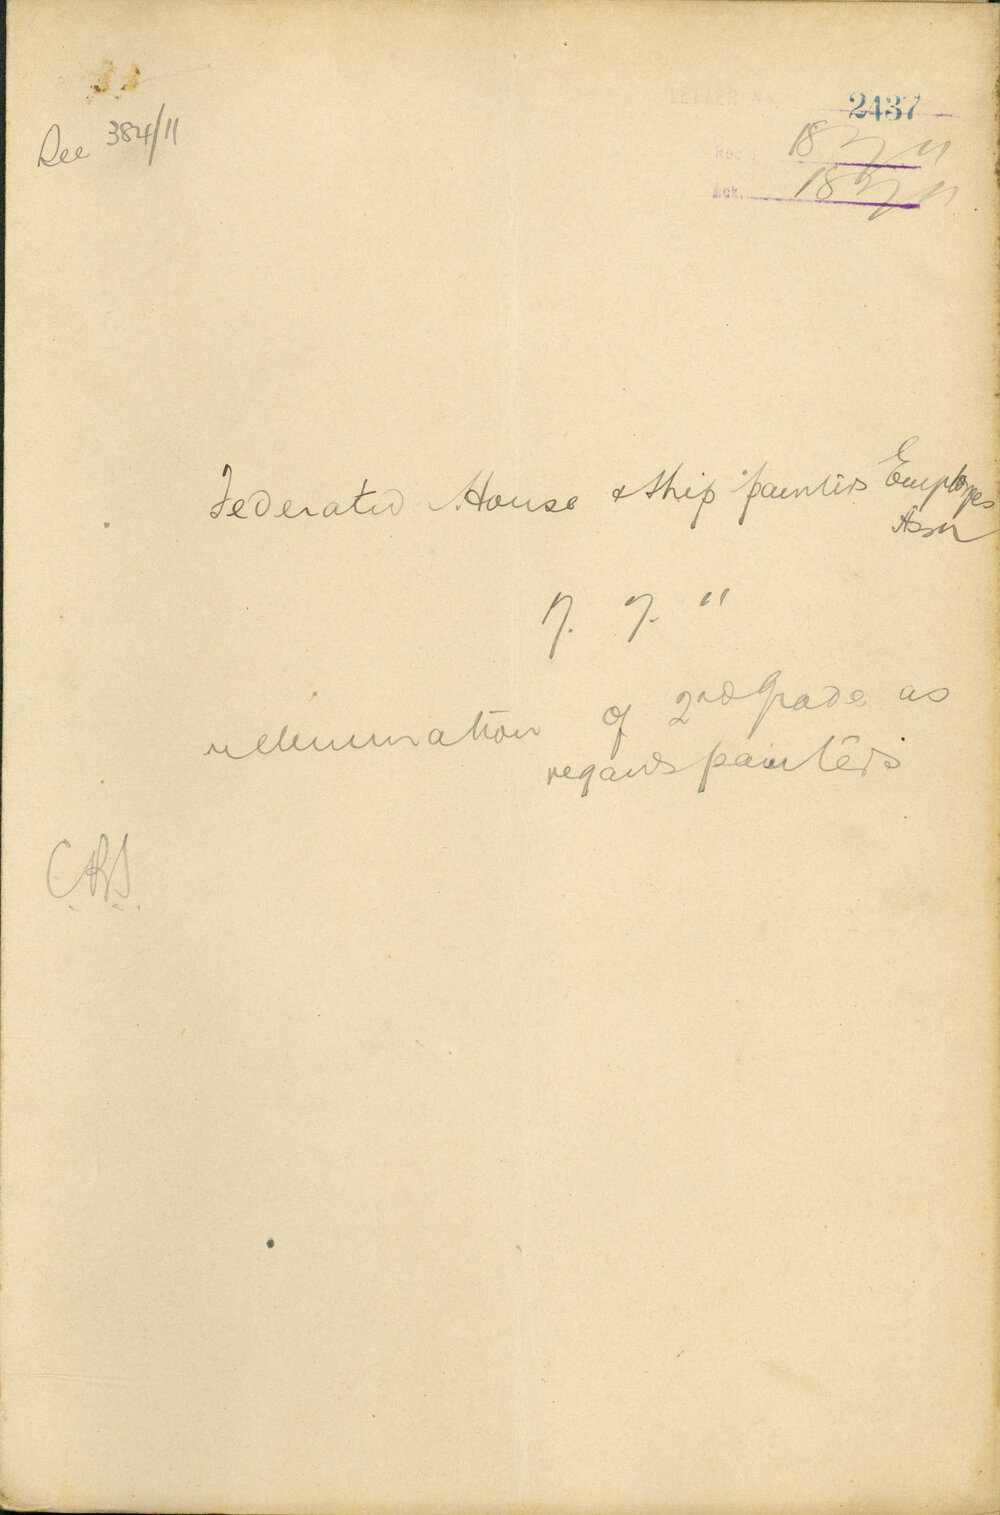 See 384/11
LETTER No. 2437
Rec. 18/7/11
Ack. 18/7/11
Federated House & Ship painters Employees
Assn
7. 7. 11
elimination of 2nd Grade as
regards painters